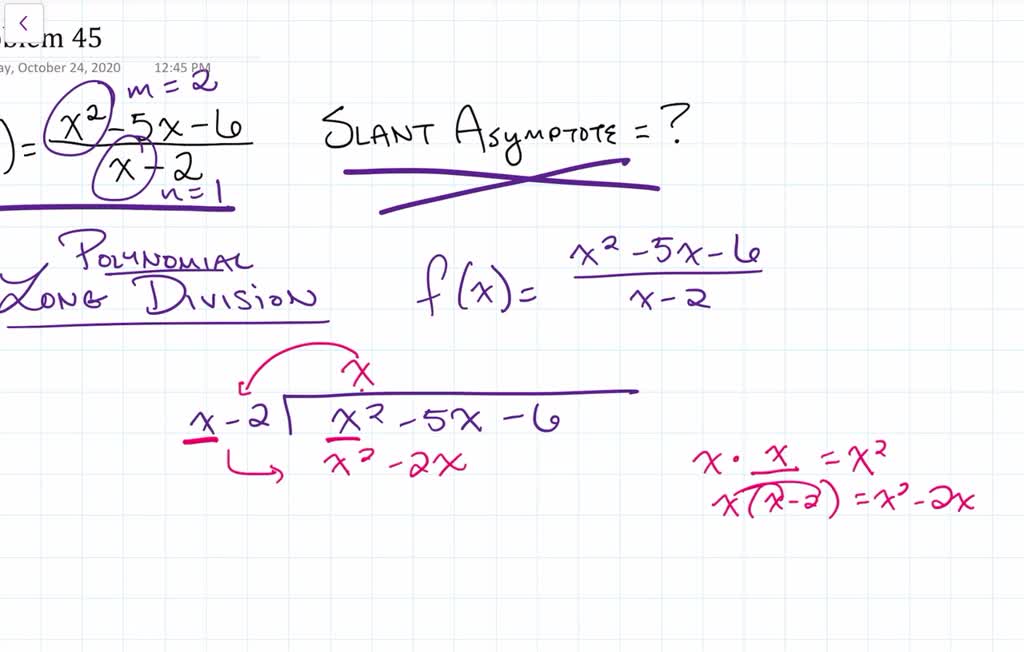 m 45
ay, October 24, 2020 12:45 PM
m = 2
) = x² - 5x - 6 / x - 2
n = 1
SLANT ASYMPTOTE = ?
POLYNOMIAL
LONG DIVISION
f(x) = x² - 5x - 6 / x - 2
x
x - 2 | x² - 5x - 6
x² - 2x
x · x = x²
x(x - 2) = x² - 2x